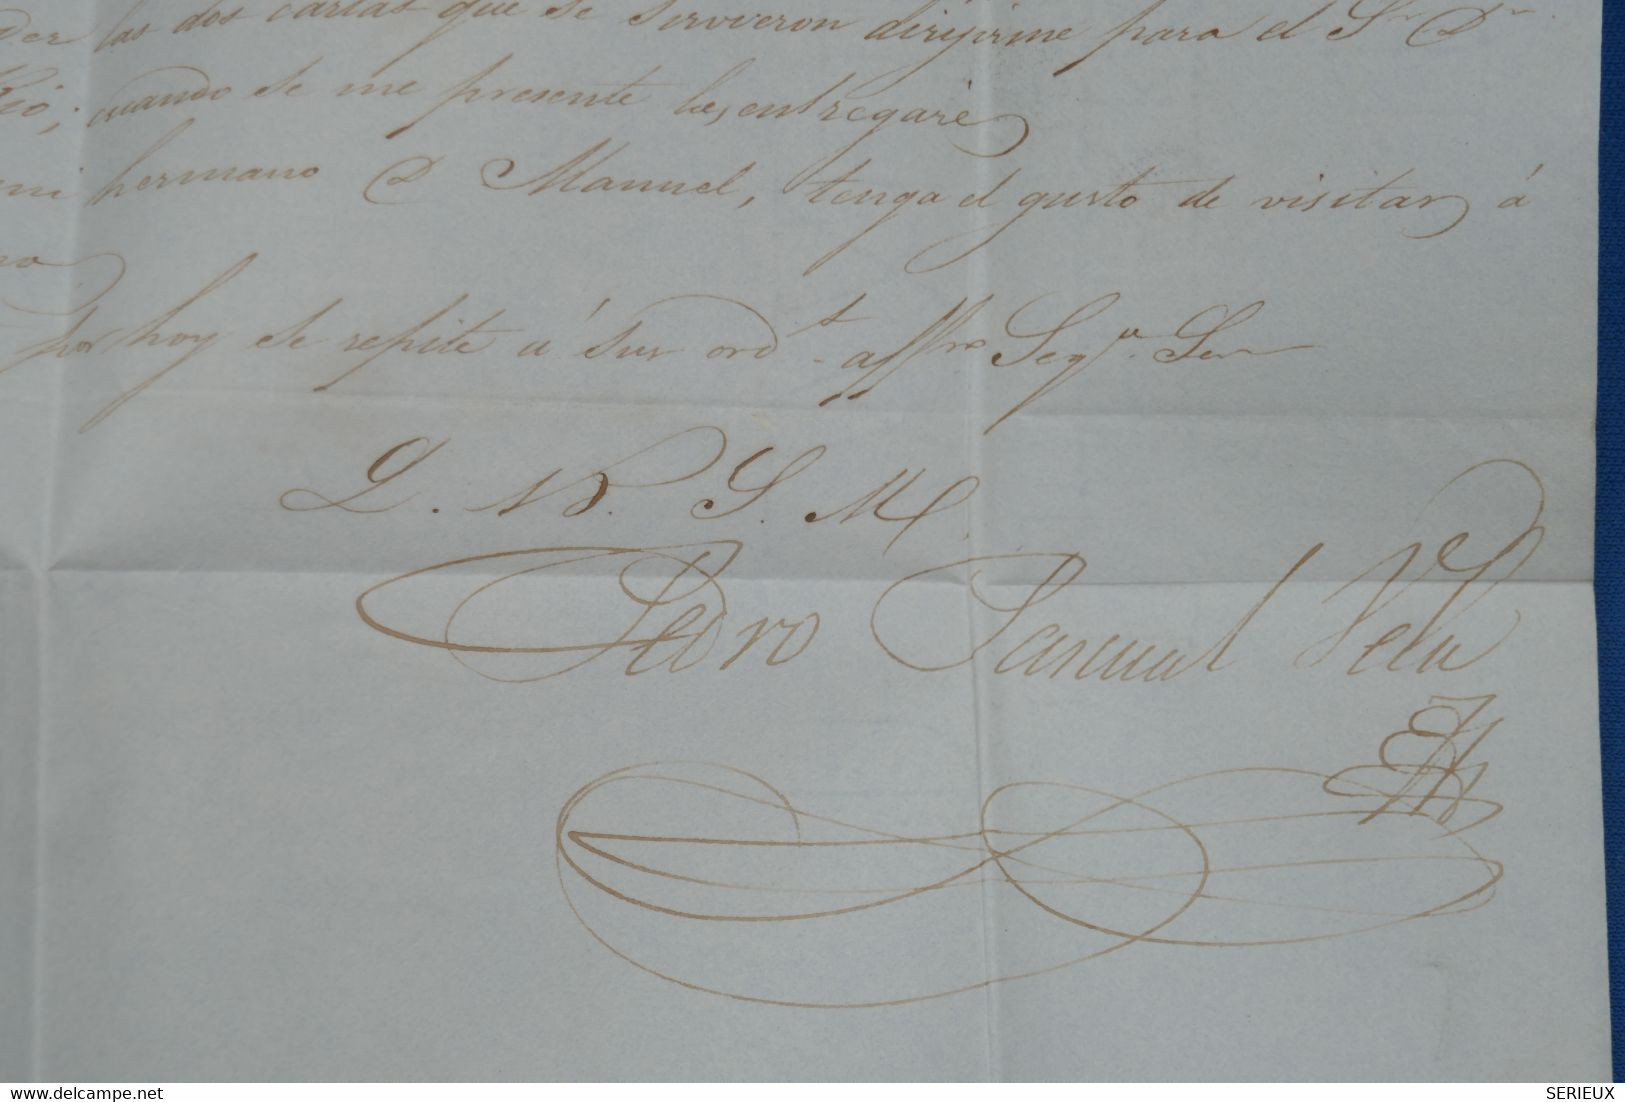 las dos cartas que se sirvieron dirijirme para el Sr. Dn.
Rió; cuando se me presente les entregaré
mi hermano D. Manuel, tenga el gusto de visitar á
Por hoy se repite á sus ords. affmo. Segu. Ser
L. B. S. M.
Pedro Pascual Vela
SERIEUX